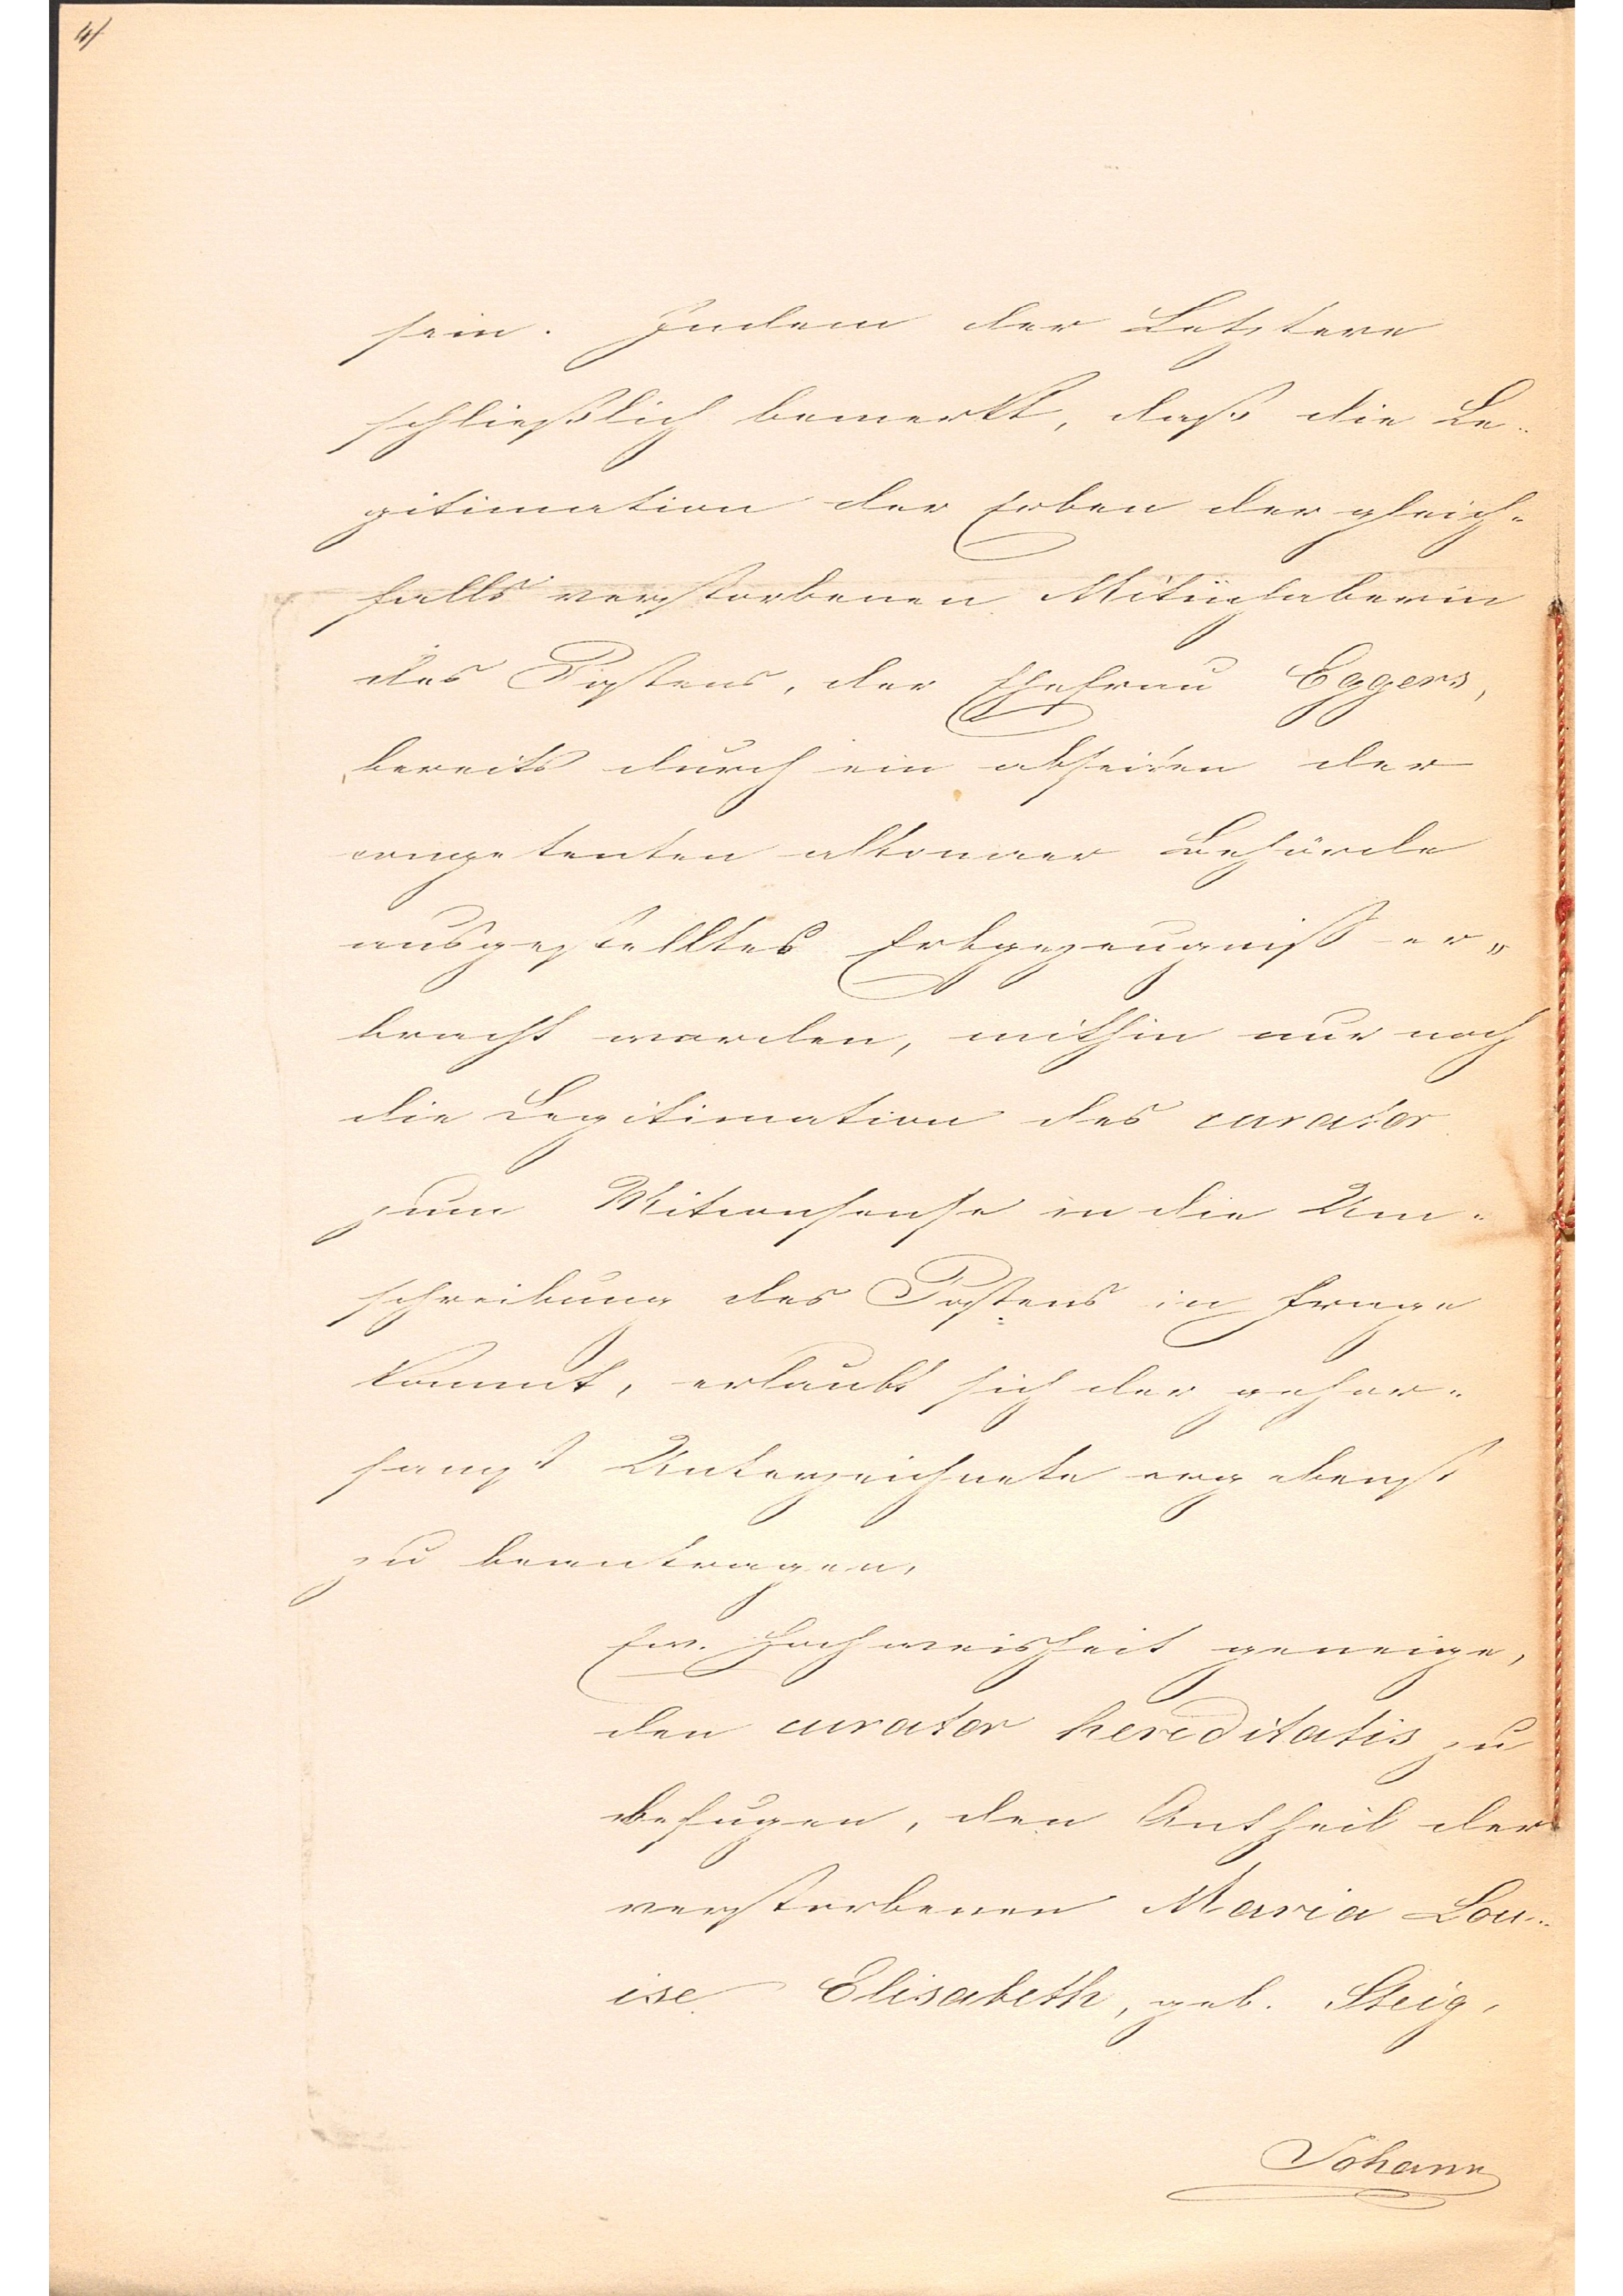 4/
sein. Indem der Letztere
schließlich bemerkt, daß die Le-
gitimation der Erben der gleich-
falls verstorbenen Mitinhaberin
des Postens, der Ehefrau Eggers,
bereits durch ein abseiten der
competenten altonaer Behörde
ausgestelltes Erbgezeugniß er-
bracht worden, mithin nur noch
die Legitimation des curator
zum Mitconsense in die Um-
schreibung des Postens in Frage
kommt, erlaubt sich der gehor-
samst Unterzeichnete ergebenst
zu beantragen,
Ew. Hochweisheit geneige,
den curator hereditatis zu
befugen, den Antheil der
verstorbenen Maria Lou-
ise Elisabeth, geb. Steig,
Johann